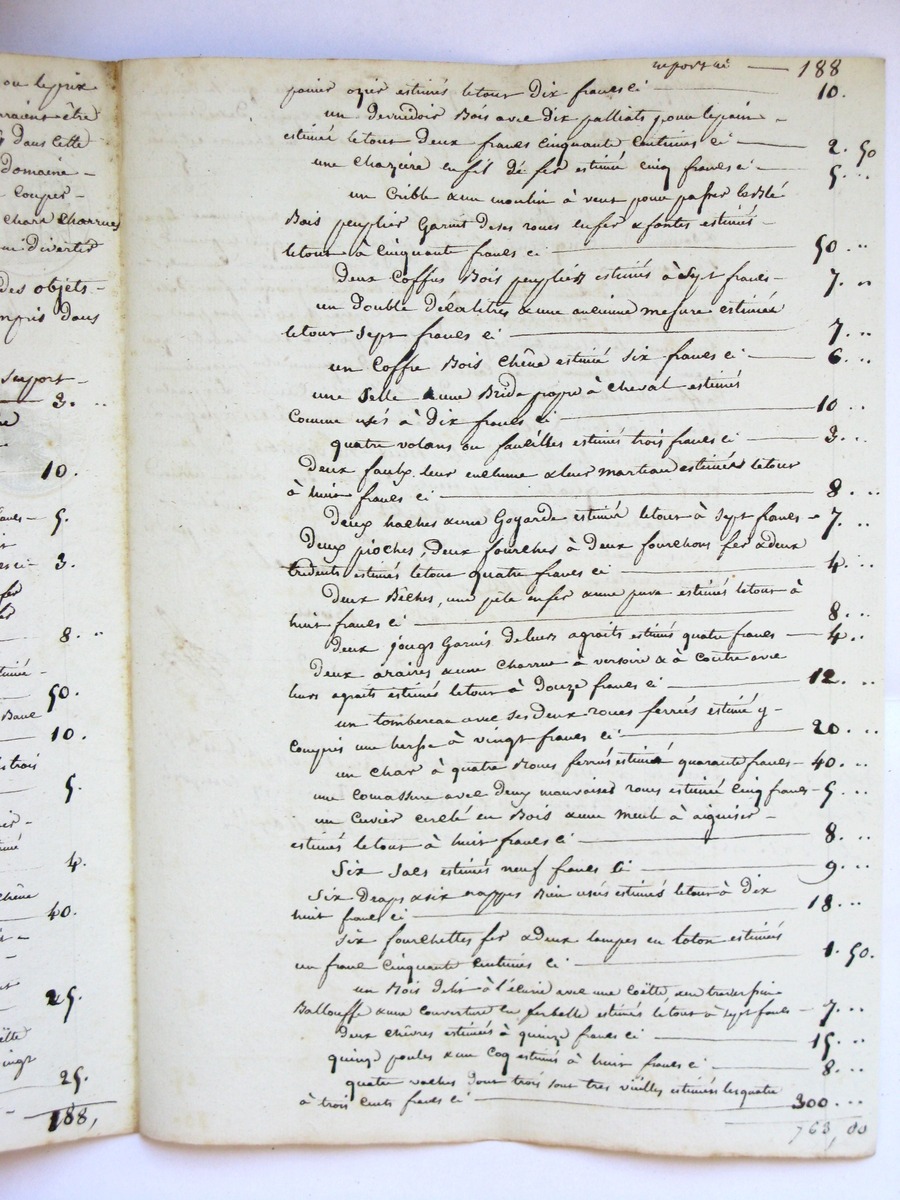 ou le prix
dans cette
Domaine -
Couper -
chars charrues
divertir
des objets -
compris dans
report -
3. ..
10.
5.
3.
8. ..
50.
10.
trois
5.
4.
chêne
40.
25.
vingt
25.
188,
reporté — 188
panier ozier estimés letout dix francs ci — 10.
un Dervidoir Bois avec dix palliats pour le pain -
estimés letout deux francs cinquante centimes ci — 2. 50
une chazière en fil de fer estimé cinq francs ci - 5. ..
un Crible & un moulin à vent pour passer le Blé
Bois peuplier Garnit de ses roues en fer & fontes estimés -
letout à Cinquante francs ci — 50 ..
Deux Coffres Bois peupliers estimés à Sept francs - 7. ..
un Double Décalitres & une ancienne mesure estimés
letout Sept francs ci — 7. ..
un Coffre Bois Chêne estimé Six francs ci — 6. ..
une Selle & une Bride propre à Cheval estimés
Comme usés à Dix francs ci — 10 ..
quatre volans ou faucilles estimés trois francs ci — 3. ..
Deux faulx leur enclume & leur marteau estimés letout
à huit francs ci — 8. ..
Deux haches & une Goyarde estimés letout à Sept francs - 7. ..
Deux pioches, Deux fourches à Deux fourchons fer & deux
tridents estimés letout quatre francs ci — 4. ..
Deux Bêches, une pèle en fer & une estimés letout à
huit francs ci — 8. ..
Deux jougs Garnis de leurs agraits estimés quatre francs — 4. ..
Deux araires & une charrue à versoire & à Coutre avec
leurs agraits estimés letout à Douze francs ci — 12. ..
un tombereau avec ses Deux roues ferrées estimé y -
Compris une herse à vingt francs ci — 20. ..
un Char à quatre Roues ferrés estimés quarante francs — 40. ..
une avec Deux mauvaises roues estimée Cinq francs - 5. ..
un Cuvier cerclé en Bois & une meule à aiguiser -
estimés letout à huit francs ci — 8. ..
Six Sacs estimés neuf francs ci — 9. ..
Six Draps & six nappes Bien usés estimés letout à Dix
huit francs ci — 18. ..
Six fourchettes fer & deux lampes en loton estimés
un franc Cinquante Centimes ci — 1. 50.
un Bois de lit à l'écurie avec une Coëtte & un traversin
Ballouffe & une Couverture en estimés letout à sept francs — 7. ..
Deux chèvres estimés à quinze francs ci — 15. ..
quinze poules & un Coq estimés à huit francs ci — 8. ..
quatre vaches dont trois sont tres vieilles estimées les quatre
à trois Cents francs ci — 300. ..
763,00